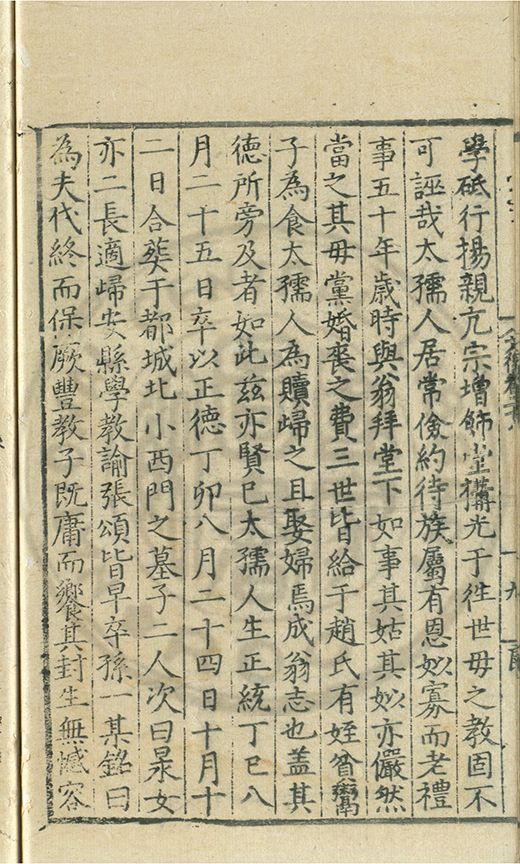 學砥行揚親亢宗增飾堂構光于徃世毋之教固不
可誣哉太孺人居常儉約待族屬有恩姒寡而老禮
事五十年歲時與翁拜堂下如事其姑其姒亦儼然
當之其毋黨婚喪之費三世皆給于趙氏有姪貧鬻
子為食太孺人為贖歸之且娶婦焉成翁志也盖其
德所旁及者如此兹亦賢已太孺人生正統丁巳八
月二十五日卒以正德丁卯八月二十四日十月十
二日合葬于都城北小西門之墓子二人次曰杲女
亦二長適歸安縣學教諭張頌皆早卒孫一某銘曰
為夫代終而保厥豐教子既庸而饗其封生無憾容